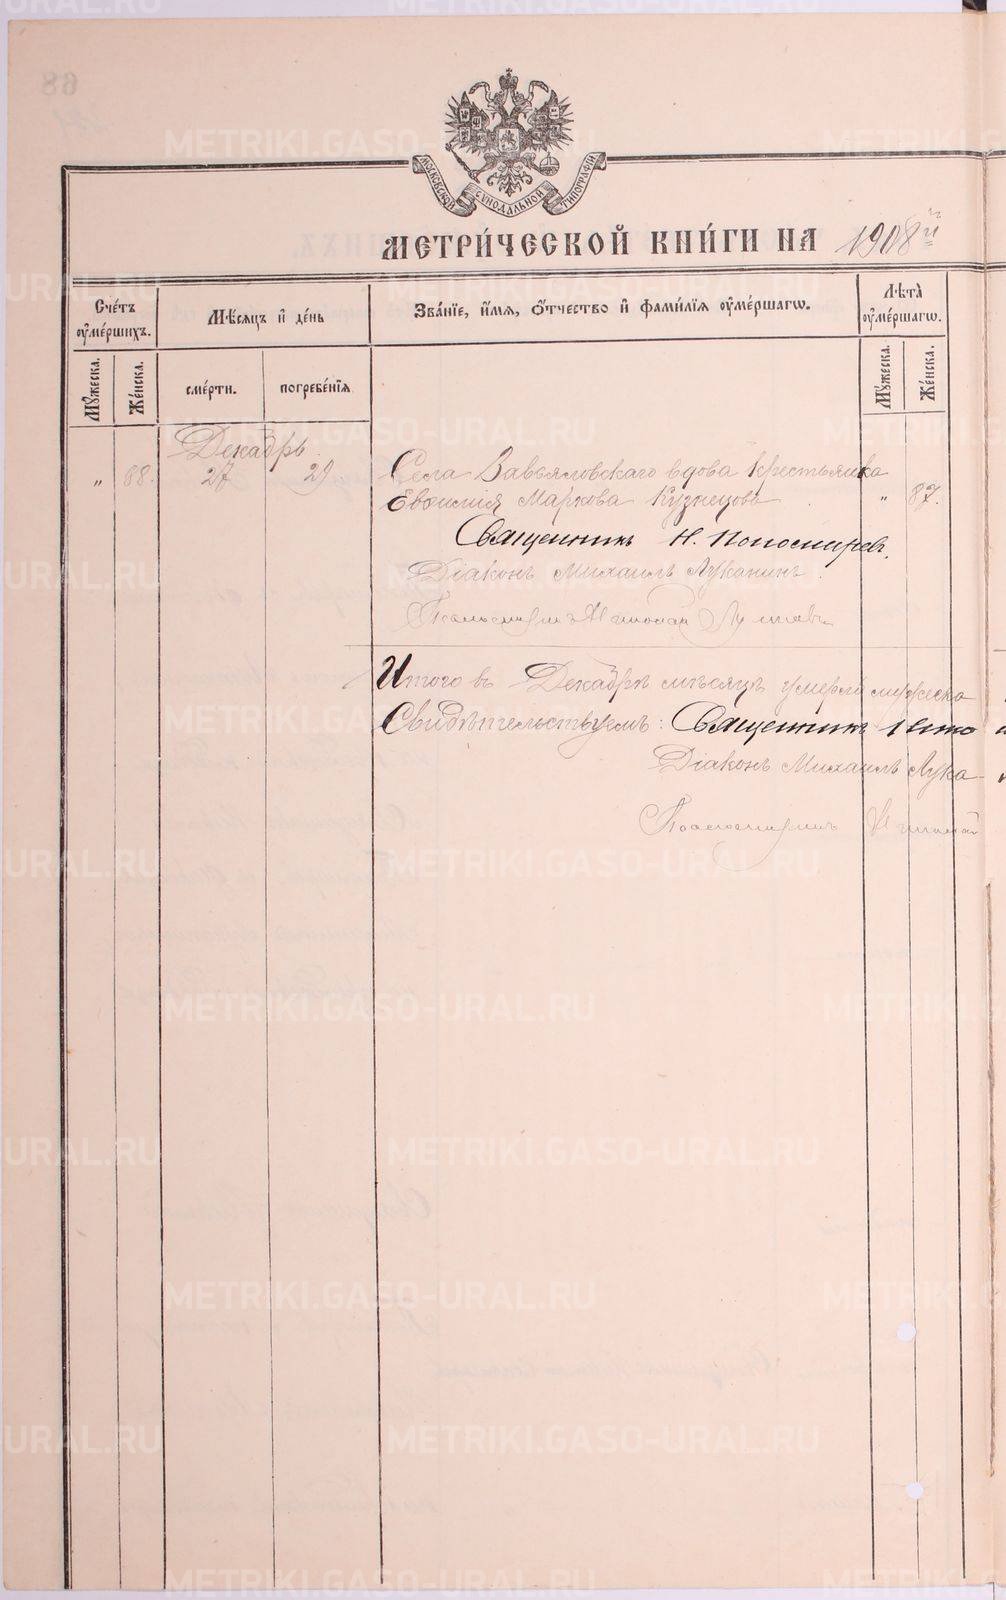 МОСКОВСКОЙ СѴНОДАЛЬНОЙ ТИПОГРАФІИ
МЕТРИ́ЧЕСКОЙ КНИ́ГИ НА 1908 й
Сче́тъ оу҆ме́ршихъ.
Мѣ́сяцъ и҆ де́нь
Зва́нїе, и҆́мя, ѻ҆́тчество и҆ фами́лїя оу҆ме́ршагѡ.
Лѣ́та оу҆ме́ршагѡ.
Мꙋ́жеска.
Же́нска.
сме́рти.
погребе́нїя
Мꙋ́жеска.
Же́нска.
Декабрь.
„ 88. 27 29 Села Завьяловскаго вдова крестьянка
Евѳимія Маркова Кузнецова „ 87.
Священникъ Н. Пономаревъ.
Діаконъ Михаилъ Луканинъ.
Псаломщикъ
Итого въ Декабрѣ мѣсяцѣ умерло мужеска
Свидѣтельствуемъ: Священникъ
Діаконъ Михаилъ Лука
Псаломщикъ
METRIKI.GASO-URAL.RU